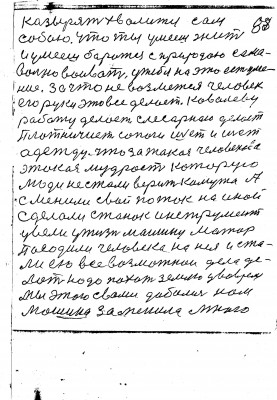 казырят хвалити сам 88
собою, что ты умееш жит
и умееш баротся с природою сама
волно воиват, ужбы на это естуме
ние. За что не возмется человек
его руки это все делает. Ковалеву
работу делает слесарнаю делает
плотничает сапоги шует и шует
адежду. что за такая человекова
этокая мудраст которую
люди не стали верит камута А
сменили свай поток на инои
сделали станок инструмент
увели ужит машину матар
Посодили человека на ней и ста-
ли ею все возможнаи дела де-
лат надо пахат землю уваврем
мы этого свами дабалис нам
машина заменила много